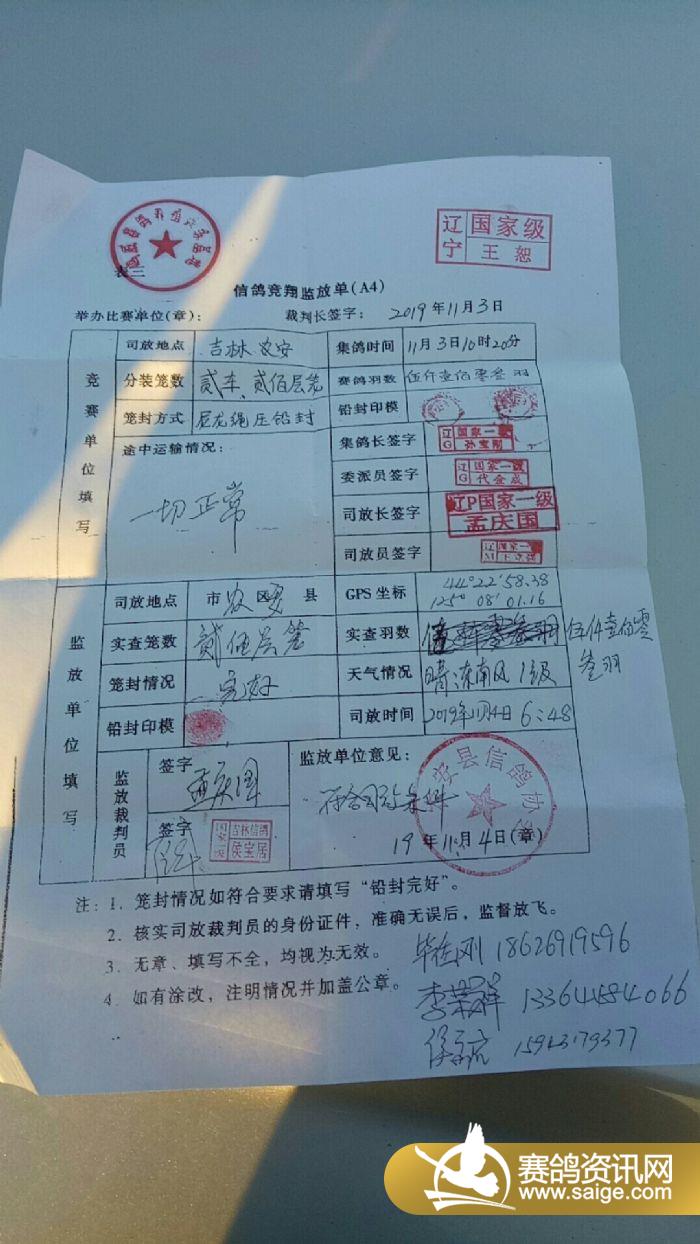 辽宁 国家级
王恕
表三
信鸽竞翔监放单(A4)
举办比赛单位(章): 裁判长签字: 2019年11月3日
竞赛单位填写
司放地点 吉林 农安 集鸽时间 11月3日10时20分
分装笼数 贰车、贰佰层笼 赛鸽羽数 伍仟壹佰零叁羽
笼封方式 尼龙绳压铅封 铅封印模
途中运输情况: 集鸽长签字 辽G 国家一级 孙宝刚
一切正常 委派员签字 辽G 国家一级 代金成
司放长签字 辽P国家一级 孟庆国
司放员签字 辽M 国家一级
监放单位填写
司放地点 市农区安县 GPS坐标 44°22′58.38 125°08′01.16
实查笼数 贰佰层笼 实查羽数 伍仟壹佰零叁羽
笼封情况 完好 天气情况 晴:东南风1级
铅封印模 司放时间 2019年11月4日6:48
监放裁判员 签字 孟庆国 监放单位意见:
符合司放条件
安县信鸽协会
签字 国家一级 吉林信鸽 侯宝居 19年11月4日(章)
注:1.笼封情况如符合要求请填写“铅封完好”。
2.核实司放裁判员的身份证件,准确无误后,监督放飞。
3.无章、填写不全,均视为无效。
4.如有涂改,注明情况并加盖公章。
18626919596
李荣群 13364484066
15943179377
赛鸽资讯网
www.saige.com